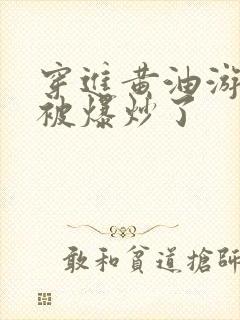 穿進黄油游
被爆炒了
敢和貧道搶師